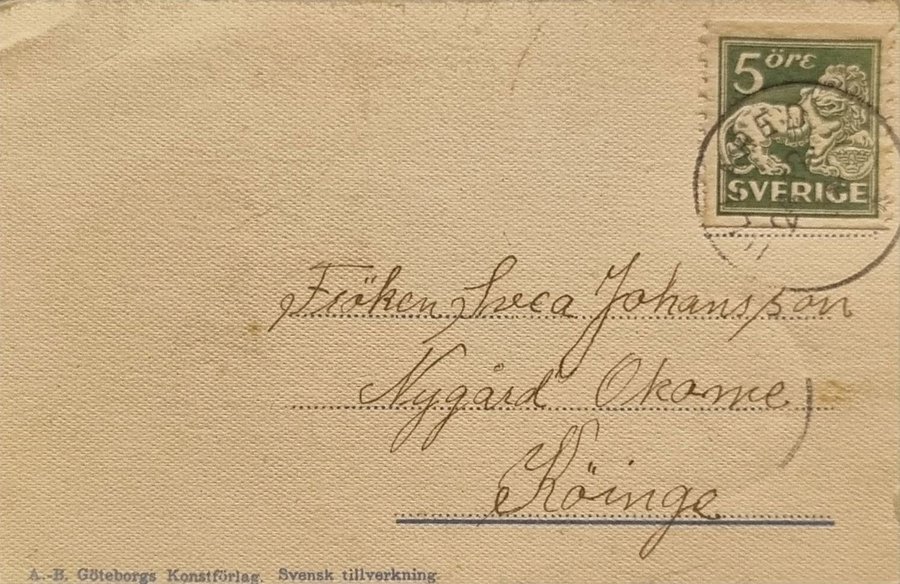 5 öre
SVERIGE
Fröken Svea Johansson
Nygård Okome
Köinge
A.-B. Göteborgs Konstförlag. Svensk tillverkning